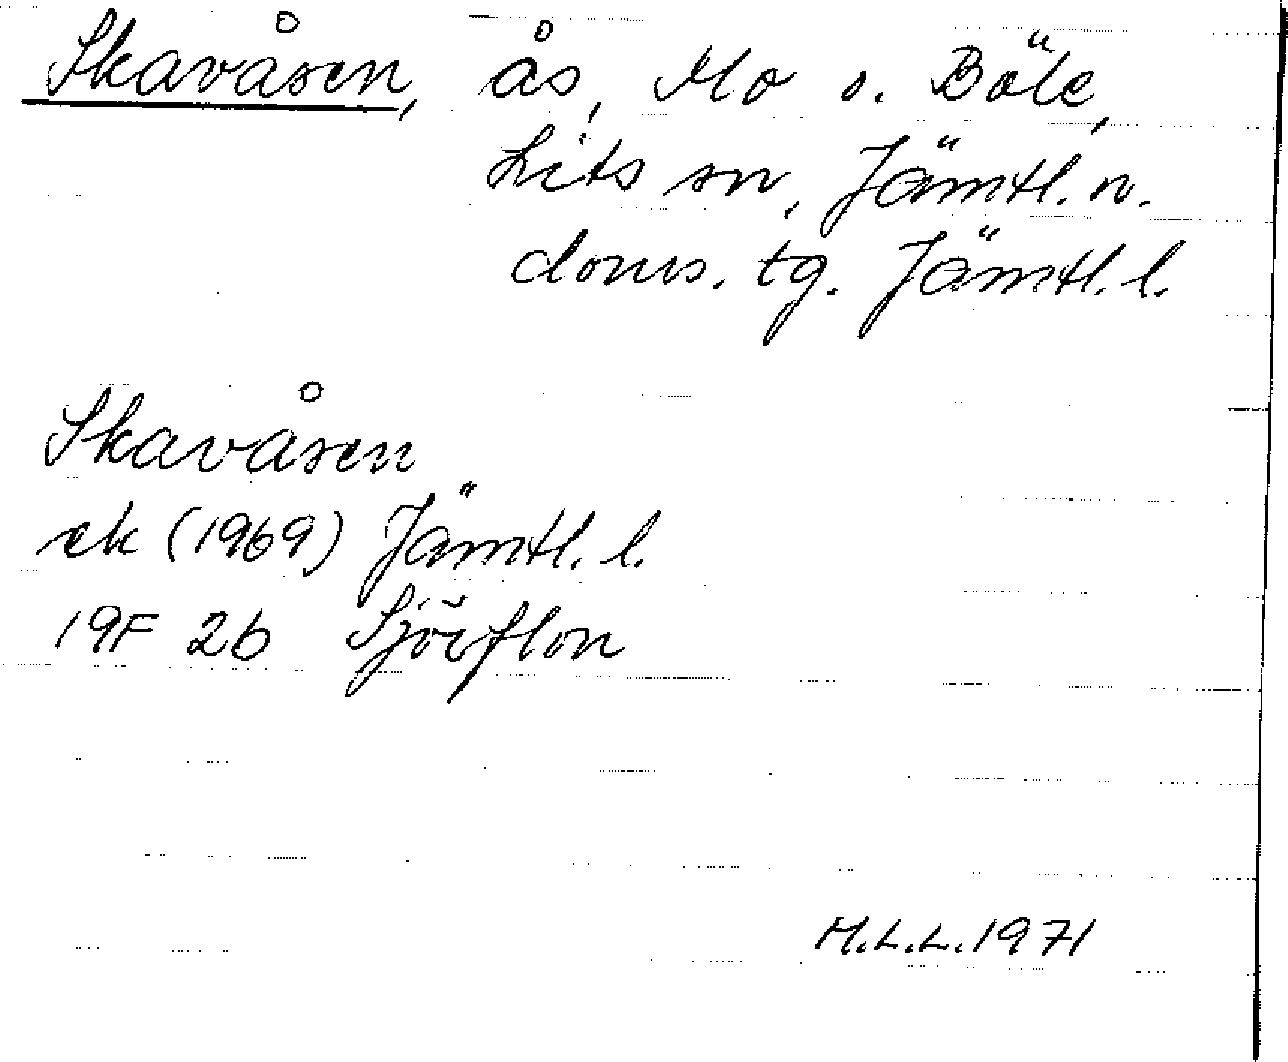 Skavåsen, ås, Mo o. Böle,
Lits sn, Jämtl. n.
doms. tg. Jämtl. l.
Skavåsen
ek (1969) Jämtl. l.
19F 2b
M.L.L. 1971